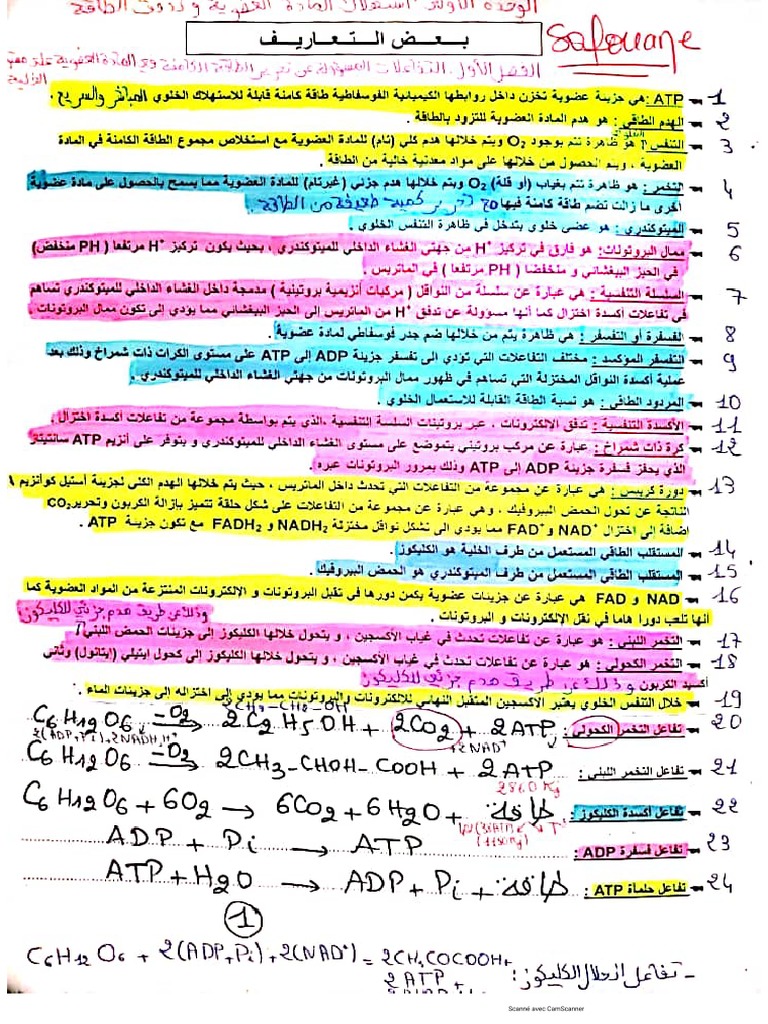 الوحدة الأولى: استهلاك المادة العضوية وتدفق الطاقة
بعض التعاريف
Safouane
الفصل الأول: التفاعلات المسؤولة عن تحرير الطاقة الكامنة في المادة العضوية على مستوى الخلية
1 ATP : هي جزيئة عضوية تخزن داخل روابطها الكيميائية الفوسفاطية طاقة كامنة قابلة للاستهلاك الخلوي المباشر والسريع .
2 الهدم الطاقي : هو هدم المادة العضوية للتزود بالطاقة .
3 التنفس الخلوي : هو ظاهرة تتم بوجود O2 ويتم خلالها هدم كلي (تام) للمادة العضوية مع استخلاص مجموع الطاقة الكامنة في المادة
العضوية ، ويتم الحصول من خلالها على مواد معدنية خالية من الطاقة .
4 التخمر : هو ظاهرة تتم بغياب (أو قلة) O2 ويتم خلالها هدم جزئي (غيرتام) للمادة العضوية مما يسمح بالحصول على مادة عضوية
أخرى ما زالت تضم طاقة كامنة فيها مع تحرير كمية ضعيفة من الطاقة .
5 الميتوكندري : هو عضي خلوي يتدخل في ظاهرة التنفس الخلوي .
6 ممال البروتونات : هو فارق في تركيز H+ من جهتي الغشاء الداخلي للميتوكندري ، بحيث يكون تركيز H+ مرتفعا ( PH منخفض)
في الحيز البيغشائي و منخفضا ( PH مرتفعا ) في الماتريس .
7 السلسلة التنفسية : هي عبارة عن سلسلة من النواقل ( مركبات أنزيمية بروتينية ) مدمجة داخل الغشاء الداخلي للميتوكندري تساهم
في تفاعلات أكسدة اختزال كما أنها مسؤولة عن تدفق H+ من الماتريس إلى الحيز البيغشائي مما يؤدي إلى تكون ممال البروتونات .
8 الفسفرة أو التفسفر : هي ظاهرة يتم من خلالها ضم جدر فوسفاطي لمادة عضوية .
9 التفسفر المؤكسد : مختلف التفاعلات التي تودي الى تفسفر جزيئة ADP إلى ATP على مستوى الكرات ذات شمراخ وذلك بعد
عملية أكسدة النواقل المختزلة التي تساهم في ظهور ممال البروتونات من جهتي الغشاء الداخلي للميتوكندري .
10 المردود الطاقي : هو نسبة الطاقة القابلة للاستعمال الخلوي
11 الأكسدة التنفسية : تدفق الإلكترونات ، عبر بروتينات السلسة التنفسية ،الذي يتم بواسطة مجموعة من تفاعلات أكسدة اختزال .
12 كرة ذات شمراخ : عبارة عن مركب بروتيني يتموضع على مستوى الغشاء الداخلي للميتوكندري و يتوفر على أنزيم ATP سانتيتاز
الذي يحفز فسفرة جزيئة ADP إلى ATP وذلك بمرور البروتونات عبره .
13 دورة كريبس : هي عبارة عن مجموعة من التفاعلات التي تحدث داخل الماتريس ، حيث يتم خلالها الهدم الكلي لجزيئة أستيل كوأنزيم A
الناتجة عن تحول الحمض البيروفيك ، وهي عبارة عن مجموعة من التفاعلات على شكل حلقة تتميز بإزالة الكربون وتحرير CO2
اضافة إلى اختزال NAD+ و FAD+ مما يودي إلى تشكل نواقل مختزلة NADH2 و FADH2 مع تكون جزيئة ATP .
14 المستقلب الطاقي المستعمل من طرف الخلية هو الكليكوز .
15 المستقلب الطاقي المستعمل من طرف الميتوكندري هو الحمض البيروفيك .
16 NAD و FAD هي عبارة عن جزيئات عضوية يكمن دورها في تقبل البروتونات و الإلكترونات المنتزعة من المواد العضوية كما
أنها تلعب دورا هاما في نقل الإلكترونات و البروتونات . وذلك عن طريق هدم جزئي للكليكوز
17 التخمر اللبني : هو عبارة عن تفاعلات تحدث في غياب الأكسجين ، و يتحول خلالها الكليكوز إلى جزيئات الحمض اللبني
18 التخمر الكحولي : هو عبارة عن تفاعلات تحدث في غياب الأكسجين ، و يتحول خلالها الكليكوز إلى كحول ايتيلي (ايتانول) وثاني
أكسيد الكربون وذلك عن طريق هدم جزئي للكليكوز
19 خلال التنفس الخلوي يعتبر الأكسجين المتقبل النهائي للإلكترونات والبروتونات مما يؤدي إلى اختزاله إلى جزيئات الماء .
CH3-CH2-OH
20 تفاعل التخمر الكحولي : C6H12O6 -O2→ 2C2H5OH + 2CO2 + 2ATP
2(ADP+Pi)+2NADH,H+ +2NAD+
21 تفاعل التخمر اللبني : C6H12O6 -O2→ 2CH3-CHOH-COOH + 2ATP
2860Kj
22 تفاعل أكسدة الكليكوز : C6H12O6 + 6O2 → 6CO2 + 6H2O + طاقة
(1150Kj)
23 تفاعل فسفرة ADP : ADP + Pi → ATP
24 تفاعل حلمأة ATP : ATP + H2O → ADP + Pi + طاقة
1
- تفاعل انحلال الكليكوز : C6H12O6 + 2(ADP+Pi) + 2(NAD+) = 2CH3COCOOH+
2ATP
+
Scanné avec CamScanner